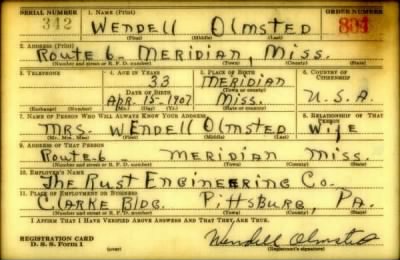 SERIAL NUMBER 1. NAME (Print) ORDER NUMBER
342 WENDELL OLMSTED 804
(First) (Middle) (Last)
2. ADDRESS (Print)
ROUTE 6. MERIDIAN, MISS.
(Number and street or R. F. D. number) (Town) (County) (State)
3. TELEPHONE 4. AGE IN YEARS 5. PLACE OF BIRTH 6. COUNTRY OF CITIZENSHIP
33 MERIDIAN
DATE OF BIRTH (Town or county)
APR-15-1907 MISS. U.S.A.
(Exchange) (Number) (Mo.) (Day) (Yr.) (State or country)
7. NAME OF PERSON WHO WILL ALWAYS KNOW YOUR ADDRESS 8. RELATIONSHIP OF THAT PERSON
MRS. WENDELL OLMSTED WIFE
(Mr., Mrs., Miss) (First) (Middle) (Last)
9. ADDRESS OF THAT PERSON
ROUTE 6 MERIDIAN MISS.
(Number and street or R. F. D. number) (Town) (County) (State)
10. EMPLOYER'S NAME
THE RUST ENGINEERING CO.
11. PLACE OF EMPLOYMENT OR BUSINESS
CLARKE BLDG. PITTSBURG, PA.
(Number and street or R. F. D. number) (Town) (County) (State)
I AFFIRM THAT I HAVE VERIFIED ABOVE ANSWERS AND THAT THEY ARE TRUE.
REGISTRATION CARD
D. S. S. Form 1 (over) Wendell Olmsted
(Registrant's signature)